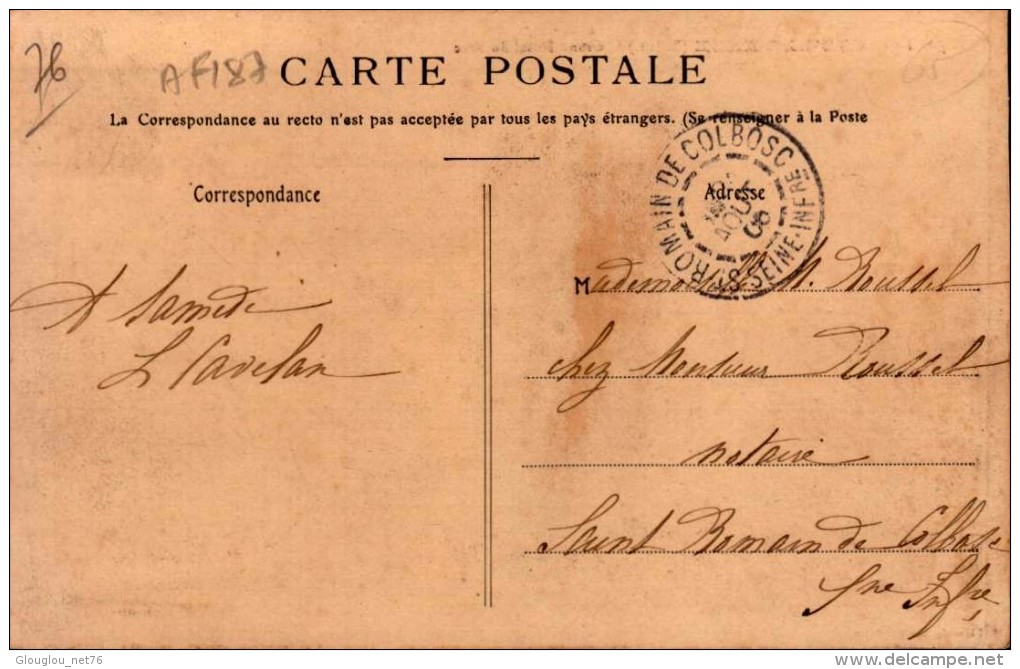 76
AF187
CARTE POSTALE
La Correspondance au recto n'est pas acceptée par tous les pays étrangers. (Se renseigner à la Poste
Correspondance
Adresse
ST ROMAIN DE COLBOSC
SEINE-INFRE
AOUT
06
A Samedi
L Cavelan
Mademoiselle M. Roussel
chez Monsieur Roussel
notaire
Saint Romain de Colbosc
Sne Infre
Glouglou_net76
delcampe.net